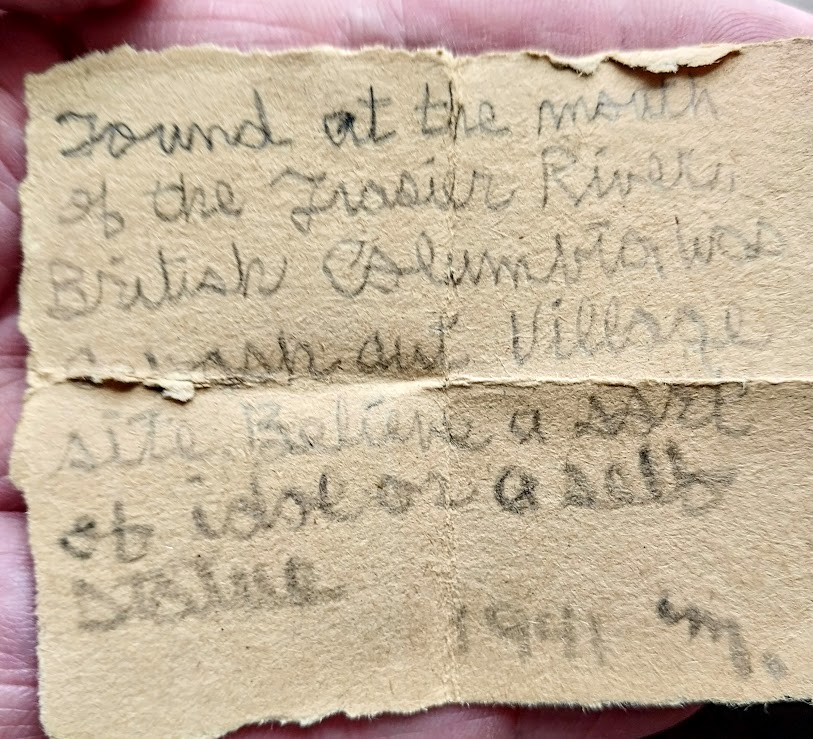 Found at the mouth
of the Frasier River,
British Columbia, was
a wash out Village
site. Believe a sort
of idol or a
statue
1941 M.